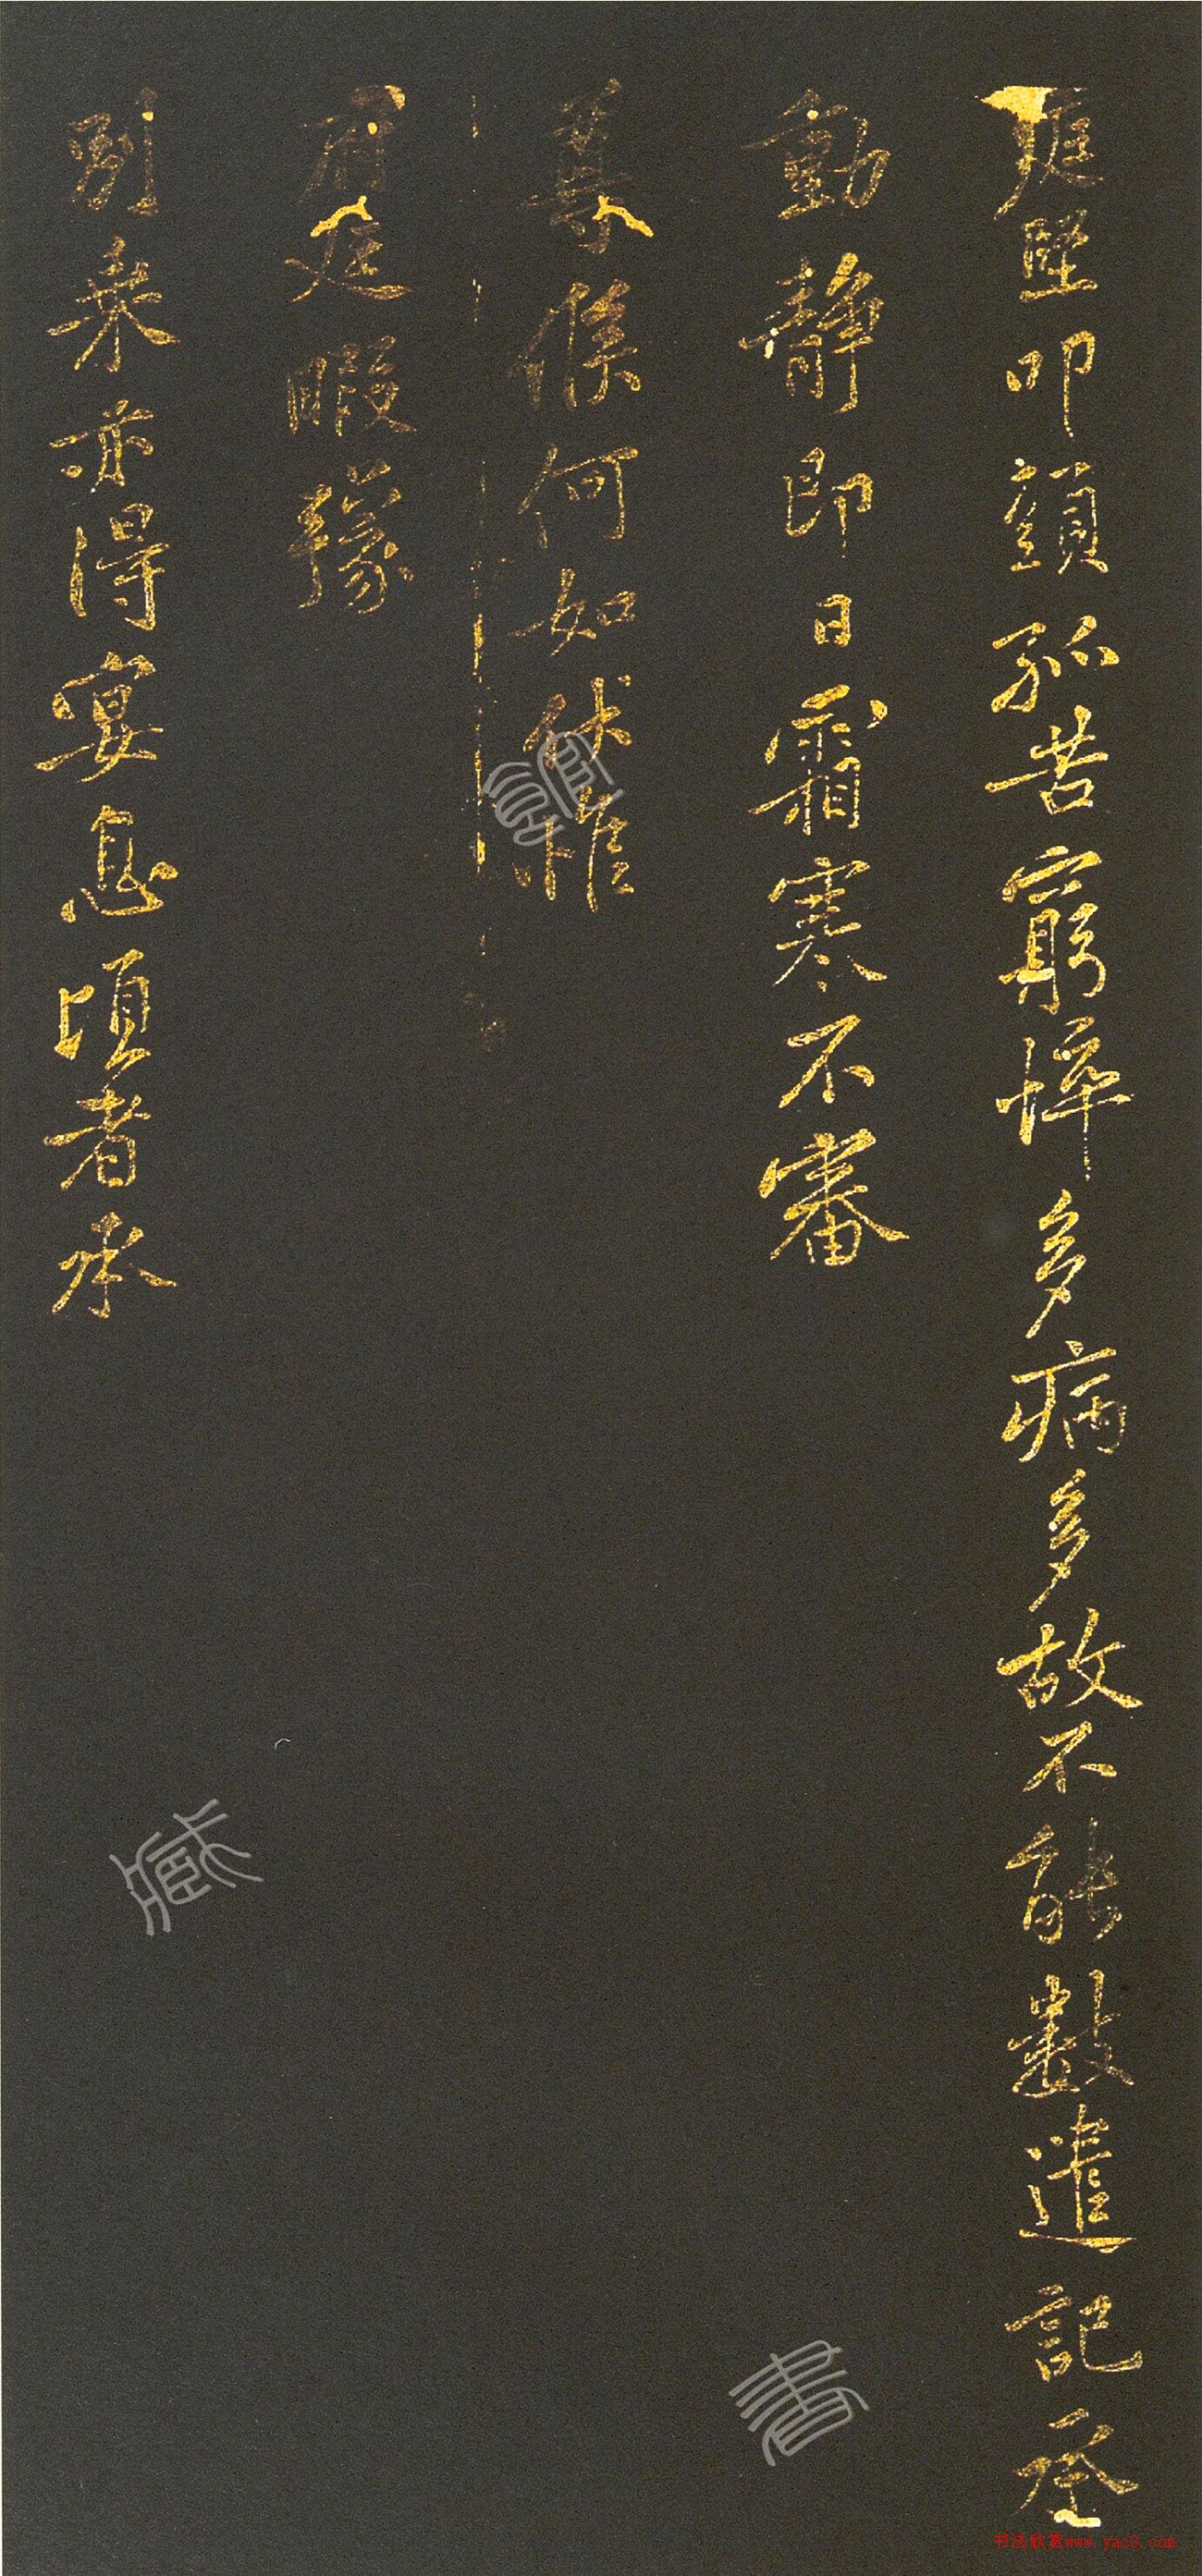 庭堅叩頭孤苦窮悴多病多故不能數進記承
動靜即日霜寒不審
尊候何如伏惟
府庭暇豫
別來亦得宴息頃者承
書法欣赏www.yac8.com